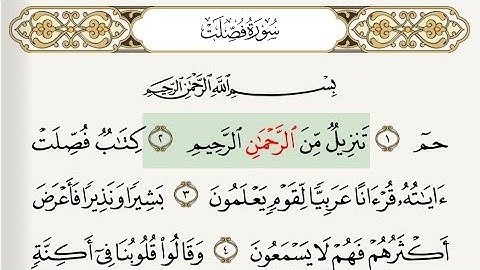 سُورَةُ فُصِّلَتْ
بِسْمِ اللَّهِ الرَّحْمَٰنِ الرَّحِيمِ
حمٓ ١ تَنزِيلٌ مِّنَ الرَّحْمَٰنِ الرَّحِيمِ ٢ كِتَٰبٌ فُصِّلَتْ
ءَايَٰتُهُۥ قُرْءَانًا عَرَبِيًّا لِّقَوْمٍ يَعْلَمُونَ ٣ بَشِيرًا وَنَذِيرًا فَأَعْرَضَ
أَكْثَرُهُمْ فَهُمْ لَا يَسْمَعُونَ ٤ وَقَالُوا۟ قُلُوبُنَا فِىٓ أَكِنَّةٍ